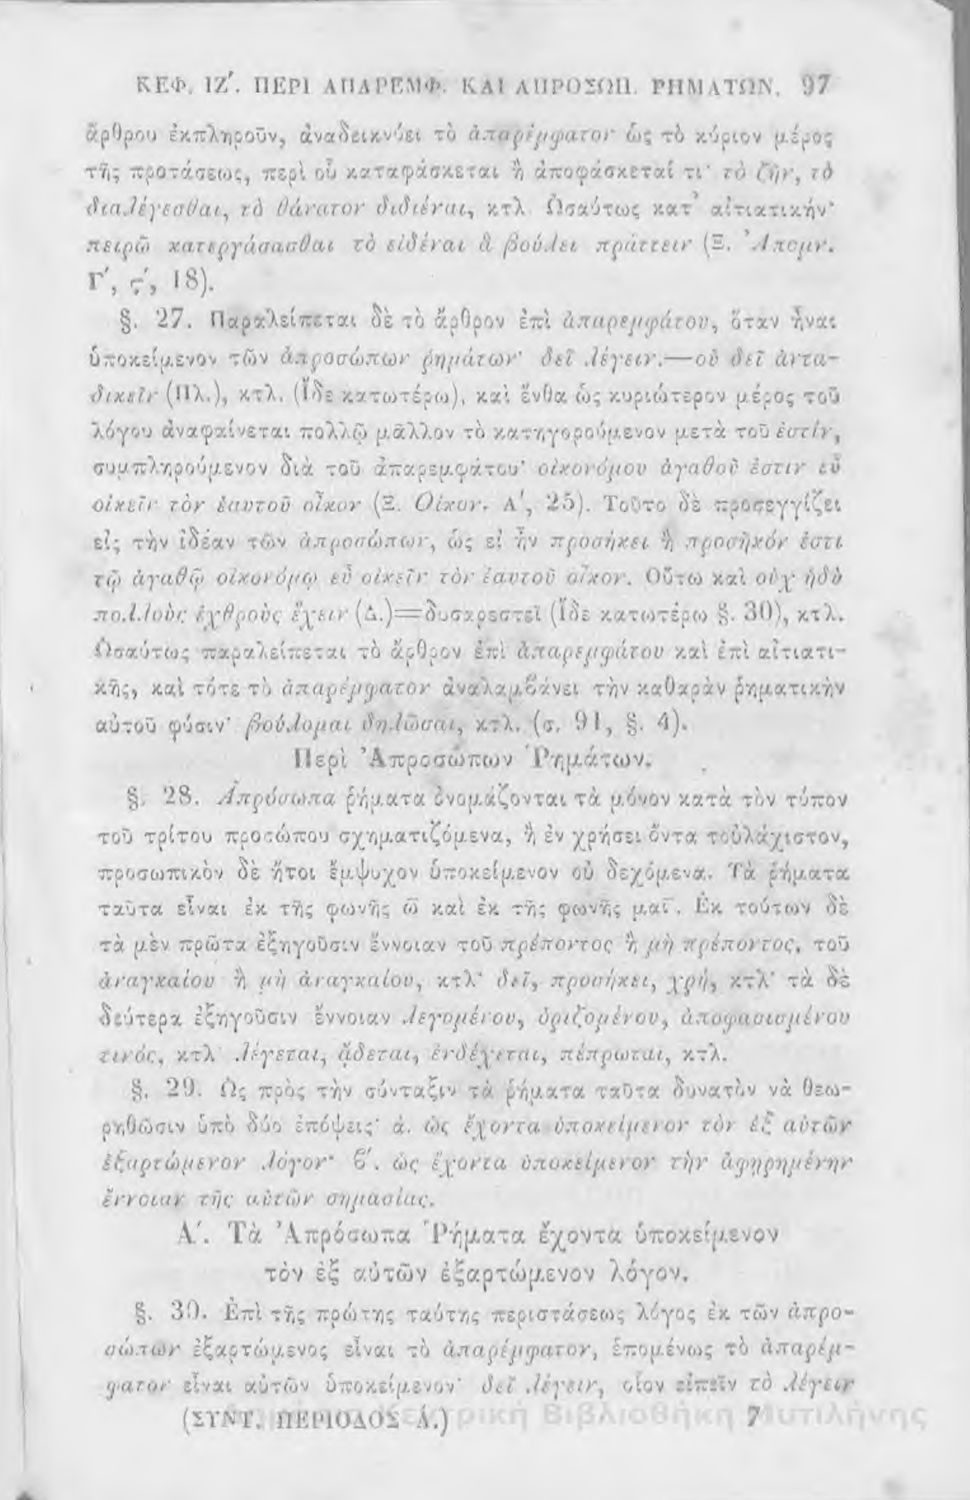 ΚΕΦ. ΙΖ΄. ΠΕΡΙ ΑΠΑΡΕΜΦ. ΚΑΙ ΑΠΡΟΣΩΠ. ΡΗΜΑΤΩΝ. 97
ἄρθρου ἐκπληροῦν, ἀναδεικνύει τὸ ἀπαρέμφατον ὡς τὸ κύριον μέρος
τῆς προτάσεως, περὶ οὗ καταφάσκεται ἢ ἀποφάσκεταί τι· τὸ ζῆν, τὸ
διαλέγεσθαι, τὸ θάνατον διδιέναι, κτλ. Ὡσαύτως κατ᾽ αἰτιατικήν·
πειρῶ κατεργάσασθαι τὸ εἰδέναι ἃ βούλει πράττειν (Ξ. Ἀπομν.
Γ΄, ϛ΄, 18).
§. 27. Παραλείπεται δὲ τὸ ἄρθρον ἐπὶ ἀπαρεμφάτου, ὅταν ᾖναι
ὑποκείμενον τῶν ἀπροσώπων ῥημάτων· δεῖ λέγειν.—οὐ δεῖ ἀντα-
δικεῖν (Πλ.), κτλ. (ἴδε κατωτέρω), καὶ ἔνθα ὡς κυριώτερον μέρος τοῦ
λόγου ἀναφαίνεται πολλῷ μᾶλλον τὸ κατηγορούμενον μετὰ τοῦ ἐστίν,
συμπληρούμενον διὰ τοῦ ἀπαρεμφάτου· οἰκονόμου ἀγαθοῦ ἐστιν εὖ
οἰκεῖν τὸν ἑαυτοῦ οἶκον (Ξ. Οἰκον. Α΄, 25). Τοῦτο δὲ προσεγγίζει
εἰς τὴν ἰδέαν τῶν ἀπροσώπων, ὡς εἰ ἦν προσήκει ἢ προσῆκόν ἐστι
τῷ ἀγαθῷ οἰκονόμῳ εὖ οἰκεῖν τὸν ἑαυτοῦ οἶκον. Οὕτω καὶ οὐχ ἡδὺ
πολλοὺς ἐχθροὺς ἔχειν (Δ.)=δυσαρεστεῖ (ἴδε κατωτέρω §. 30), κτλ.
Ὡσαύτως παραλείπεται τὸ ἄρθρον ἐπὶ ἀπαρεμφάτου καὶ ἐπὶ αἰτιατι-
κῆς, καὶ τότε τὸ ἀπαρέμφατον ἀναλαμβάνει τὴν καθαρὰν ῥηματικὴν
αὑτοῦ φύσιν· βούλομαι δηλῶσαι, κτλ. (σ. 91, §. 4).
Περὶ Ἀπροσώπων Ῥημάτων.
§. 28. Ἀπρόσωπα ῥήματα ὀνομάζονται τὰ μόνον κατὰ τὸν τύπον
τοῦ τρίτου προσώπου σχηματιζόμενα, ἢ ἐν χρήσει ὄντα τοὐλάχιστον,
προσωπικὸν δὲ ἤτοι ἔμψυχον ὑποκείμενον οὐ δεχόμενα. Τὰ ῥήματα
ταῦτα εἶναι ἐκ τῆς φωνῆς ω καὶ ἐκ τῆς φωνῆς μαι. Ἐκ τούτων δὲ
τὰ μὲν πρῶτα ἐξηγοῦσιν ἔννοιαν τοῦ πρέποντος ἢ μὴ πρέποντος, τοῦ
ἀναγκαίου ἢ μὴ ἀναγκαίου, κτλ· δεῖ, προσήκει, χρή, κτλ· τὰ δὲ
δεύτερα ἐξηγοῦσιν ἔννοιαν λεγομένου, ὁριζομένου, ἀποφασισμένου
τινός, κτλ· λέγεται, ᾄδεται, ἐνδέχεται, πέπρωται, κτλ.
§. 29. Ὡς πρὸς τὴν σύνταξιν τὰ ῥήματα ταῦτα δυνατὸν νὰ θεω-
ρηθῶσιν ὑπὸ δύο ἐπόψεις· ά. ὡς ἔχοντα ὑποκείμενον τὸν ἐξ αὐτῶν
ἐξαρτώμενον λόγον· β΄. ὡς ἔχοντα ὑποκείμενον τὴν ἀφῃρημένην
ἔννοιαν τῆς αὑτῶν σημασίας.
Α΄. Τὰ Ἀπρόσωπα Ῥήματα ἔχοντα ὑποκείμενον
τὸν ἐξ αὐτῶν ἐξαρτώμενον λόγον.
§. 30. Ἐπὶ τῆς πρώτης ταύτης περιστάσεως λόγος ἐκ τῶν ἀπρο-
σώπων ἐξαρτώμενος εἶναι τὸ ἀπαρέμφατον, ἑπομένως τὸ ἀπαρέμ-
φατον εἶναι αὐτῶν ὑποκείμενον· δεῖ λέγειν, οἷον εἰπεῖν τὸ λέγειν
(ΣΥΝΤ. ΠΕΡΙΟΔΟΣ Ά.) 7
Κεντρική Βιβλιοθήκη Μυτιλήνης